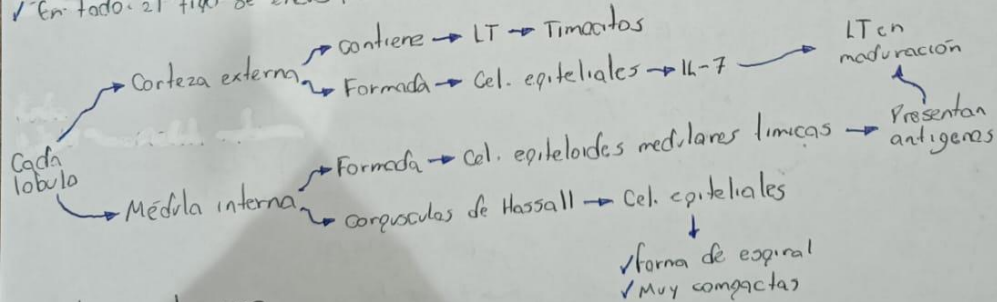 ✓ En todo: el tipo de
Corteza externa → contiene → LT → Timocitos
→ Formada → Cel. epiteliales → IL-7 → LT en
maduración
Cada
lóbulo
Médula interna → Formada → Cel. epiteloides medulares tímicas → Presentan
antígenos
→ corpusculos de Hassall → Cel. epiteliales
✓ forma de espiral
✓ Muy compactas